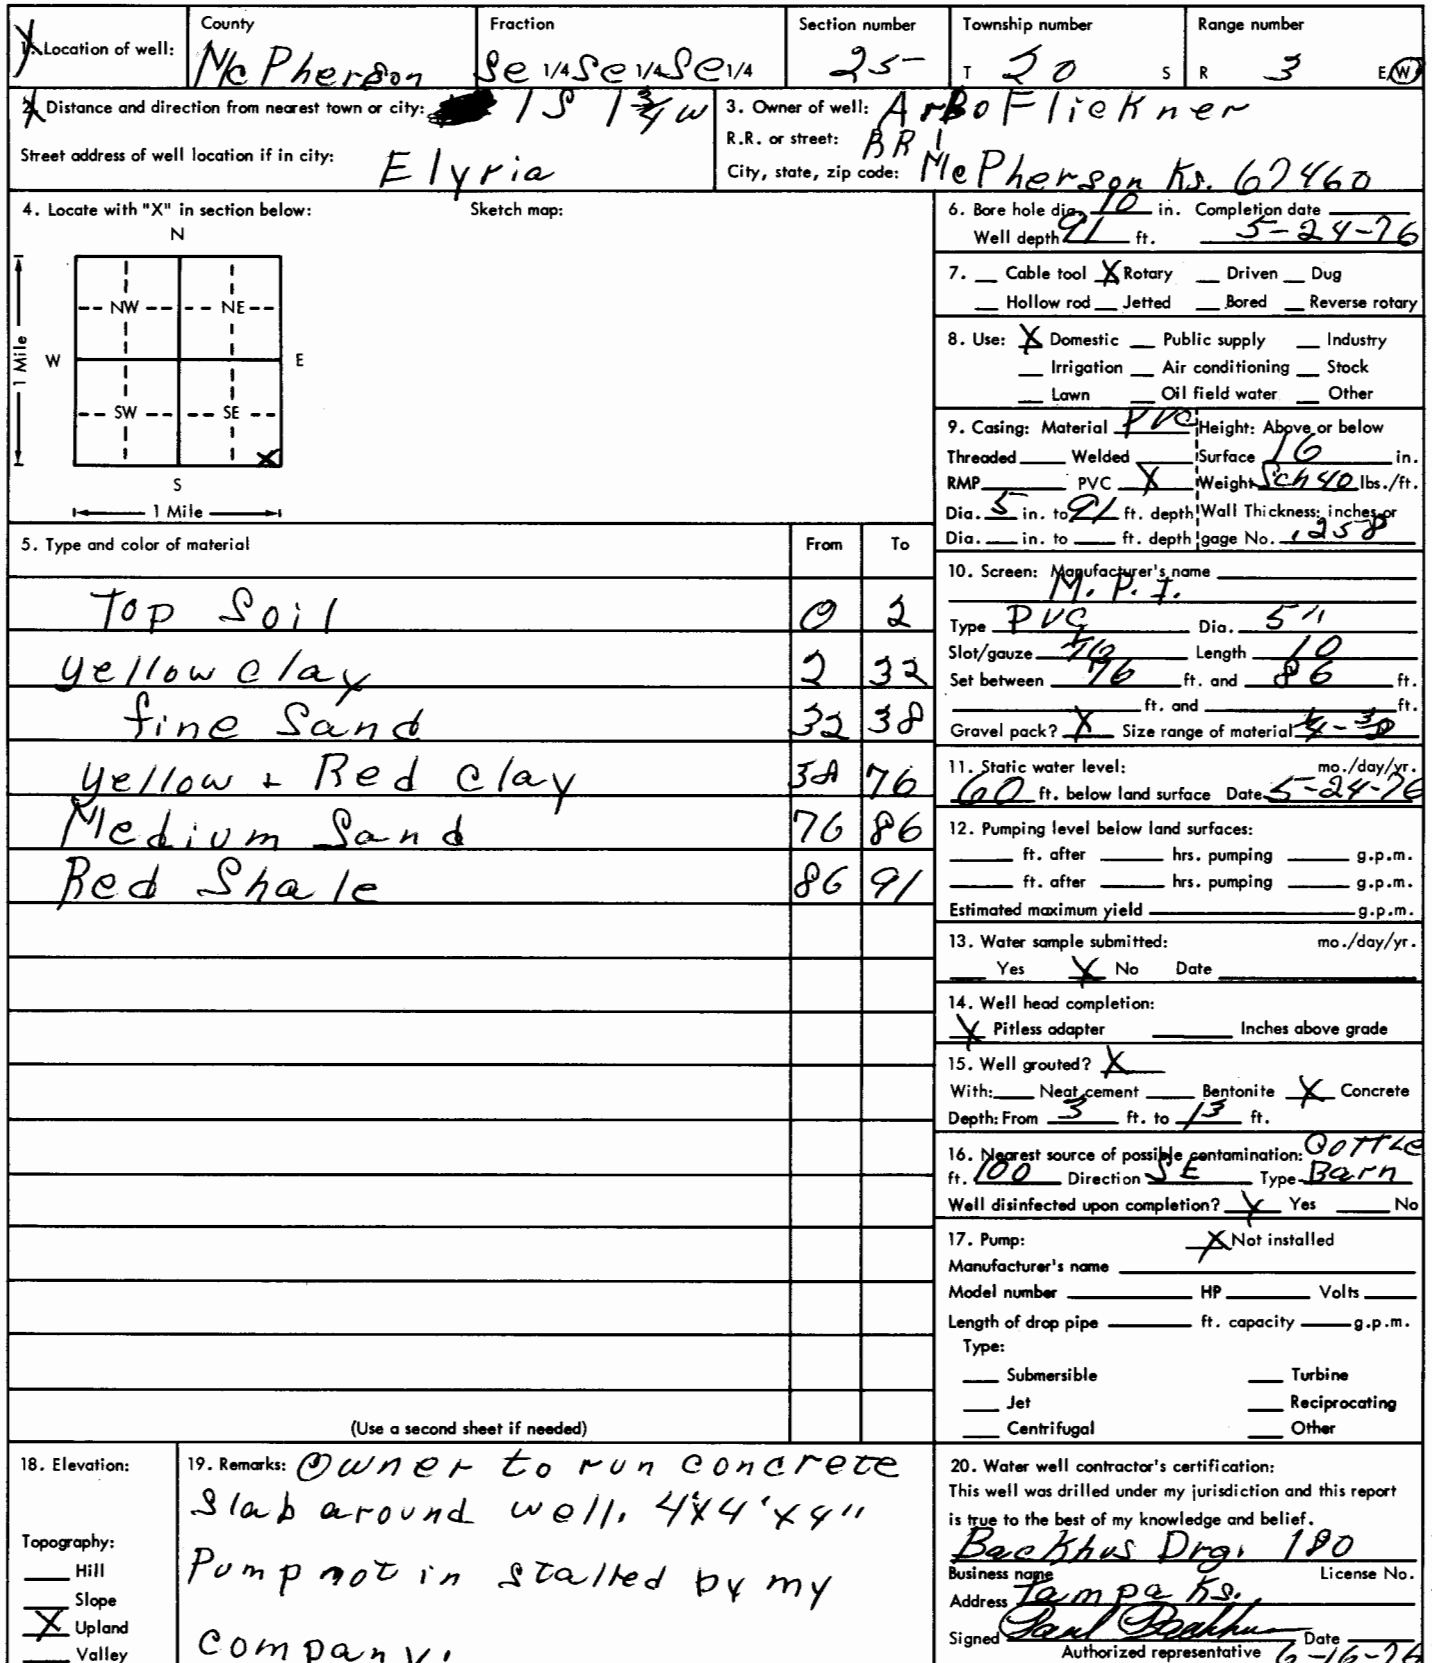 1. Location of well: County McPherson Fraction Se 1/4 Se 1/4 Se 1/4 Section number 25 Township number T 20 S Range number R 3 E/W
2. Distance and direction from nearest town or city: 1 S 1 3/4 W
Street address of well location if in city: Elyria
3. Owner of well: Arbo Flickner
R.R. or street: RR 1
City, state, zip code: McPherson Ks. 67460
4. Locate with "X" in section below: Sketch map:
N
NW NE
W E
1 Mile
SW SE
X
S
1 Mile
6. Bore hole dia. 10 in. Completion date
Well depth 91 ft. 5-24-76
7. Cable tool X Rotary Driven Dug
Hollow rod Jetted Bored Reverse rotary
8. Use: X Domestic Public supply Industry
Irrigation Air conditioning Stock
Lawn Oil field water Other
9. Casing: Material PVC Height: Above or below
Threaded Welded Surface 16 in.
RMP PVC X Weight Sch 40 lbs./ft.
Dia. 5 in. to 91 ft. depth Wall Thickness: inches or
Dia. in. to ft. depth gage No. .258
5. Type and color of material From To
Top Soil 0 2
yellow clay 2 32
fine Sand 32 38
yellow + Red clay 38 76
Medium Sand 76 86
Red Shale 86 91
(Use a second sheet if needed)
10. Screen: Manufacturer's name
M. P. I.
Type PVC Dia. 5"
Slot/gauze Length 10
Set between 76 ft. and 86 ft.
ft. and ft.
Gravel pack? X Size range of material
11. Static water level: mo./day/yr.
60 ft. below land surface Date 5-24-76
12. Pumping level below land surfaces:
ft. after hrs. pumping g.p.m.
ft. after hrs. pumping g.p.m.
Estimated maximum yield g.p.m.
13. Water sample submitted: mo./day/yr.
Yes X No Date
14. Well head completion:
X Pitless adapter Inches above grade
15. Well grouted? X
With: Neat cement Bentonite X Concrete
Depth: From 3 ft. to 13 ft.
16. Nearest source of possible contamination: Cottle
ft. 100 Direction SE Type Barn
Well disinfected upon completion? X Yes No
17. Pump: X Not installed
Manufacturer's name
Model number HP Volts
Length of drop pipe ft. capacity g.p.m.
Type:
Submersible Turbine
Jet Reciprocating
Centrifugal Other
18. Elevation:
Topography:
Hill
Slope
X Upland
Valley
19. Remarks: Owner to run concrete
Slab around well. 4'x4'x4"
Pump not in stalled by my
company.
20. Water well contractor's certification:
This well was drilled under my jurisdiction and this report
is true to the best of my knowledge and belief.
Backhus Drg. 180
Business name License No.
Address Tampa Ks.
Signed Paul Backhus Date
Authorized representative 6-16-76